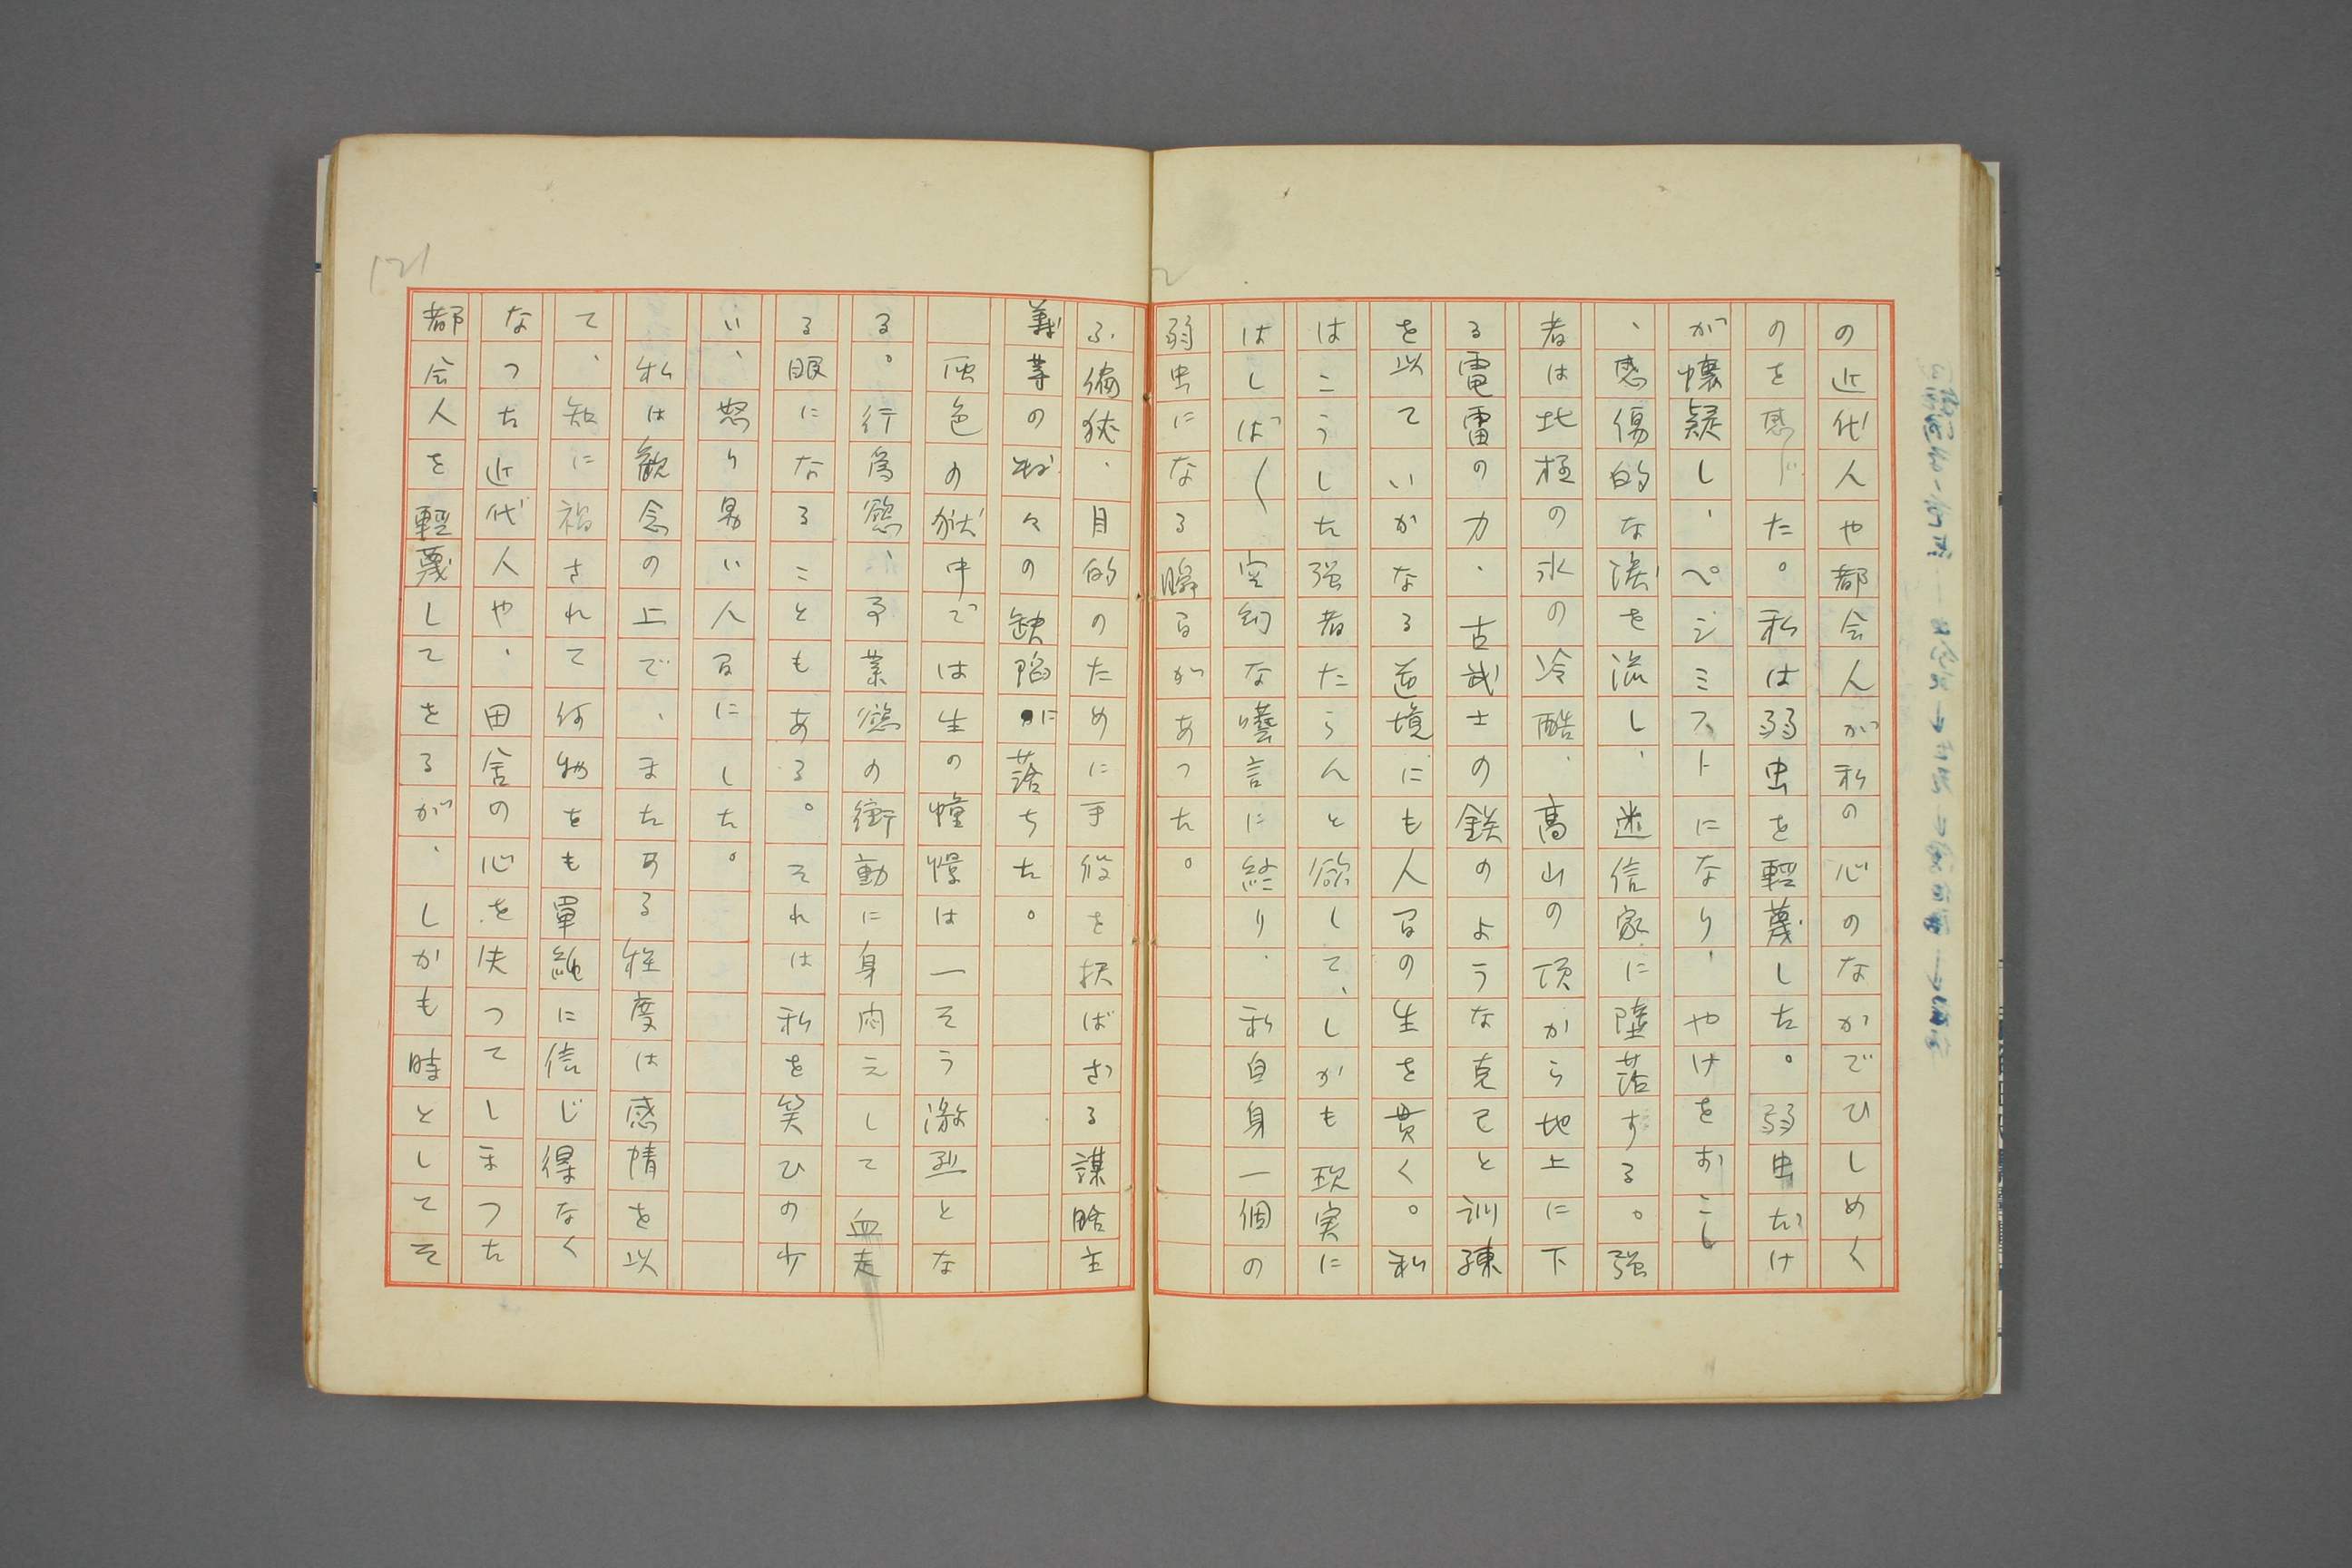 の近代人や都会人が私の心のなかでひしめく
のを感じた。私は弱虫を軽蔑した。弱虫だけ
が懐疑し、ペシミストになり、やけをおこし
、感傷的な涙を流し、迷信家に墮落する。強
者は北極の氷の冷酷、高山の頂から地上に下
る電雷の力、古武士の鉄のような克己と訓練
を以ていかなる逆境にも人间の生を貫く。私
はこうした强者たらんと欲して、しかも現実に
はしばゝ空幻な囈言に終り、私自身一個の
弱虫になる瞬间があつた。
ふ偏狹、目的のために手段を択ばざる謀略主
義等の数々の缺陷に落ちた。
灰色の獄中では生の憧憬は一そう激烈とな
る。行為慾、事業慾の衝動に身肉えして血走
る眼になることもある。それは私を笑ひの少
い、怒り易い人间にした。
私は観念の上で、またある程度は感情を以
て、知に禍されて何物をも單純に信じ得なく
なつた近代人や、田舎の心を失つてしまつた
都会人を輕蔑してをるが、しかも時としてそ
121